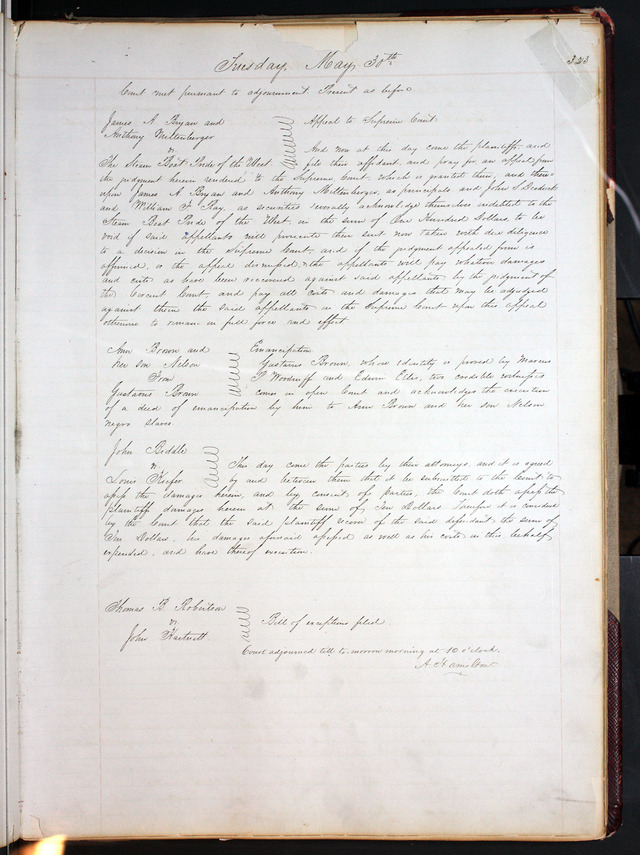 Tuesday, May 30th 323
Court met pursuant to adjournment Present as before
James A Bryan and Appeal to Supreme Court
Anthony Miltenberger
vs And now at this day come the plaintiffs and
The Steam Boat Pride of the West file their affidavit and pray for an appeal from
the judgment herein rendered to the Supreme Court, which is granted them, and there
upon James A Bryan and Anthony Miltenberger, as principals and John S
and William F Ray, as securities severally acknowledge themselves indebted to the
Steam Boat Pride of the West, in the sum of One Hundred Dollars, to be
void if said appellants will prosecute their suit now taken with due diligence
to a decision in the Supreme Court, and if the judgment appealed from is
affirmed, or the appeal dismissed, & the appellants will pay whatever damages
and costs as have been recovered against said appellants by the judgment of
the Circuit Court, and pay all costs and damages that may be adjudged
against them the said appellants in the Supreme Court upon this appeal
otherwise to remain in full force and effect
Ann Brown and Emancipation
her son Nelson Gustavus Brown, whose identity is proved by Marcus
From P Woodruff and Edwin Ellis, two credible witnesses
Gustavus Brown comes in open Court and acknowledges the execution
of a deed of emancipation by him to Ann Brown and her son Nelson
negro slaves
John Biddle
vs This day come the parties by their attorneys and it is agreed
Louis by and between them that it be submitted to the Court to
assess the damages herein, and by consent of parties, the Court doth assess the
plaintiff damages herein at the sum of Ten Dollars Therefore it is considered
by the Court that the said plaintiff recover of the said defendant the sum of
Ten Dollars, his damages aforesaid assessed as well as his costs in this behalf
expended, and have thereof execution.
Thomas B. Robertson
vs Bill of exceptions filed.
John Hartnett.
Court adjourned till to morrow morning at 10 o'clock.
A. Hamilton